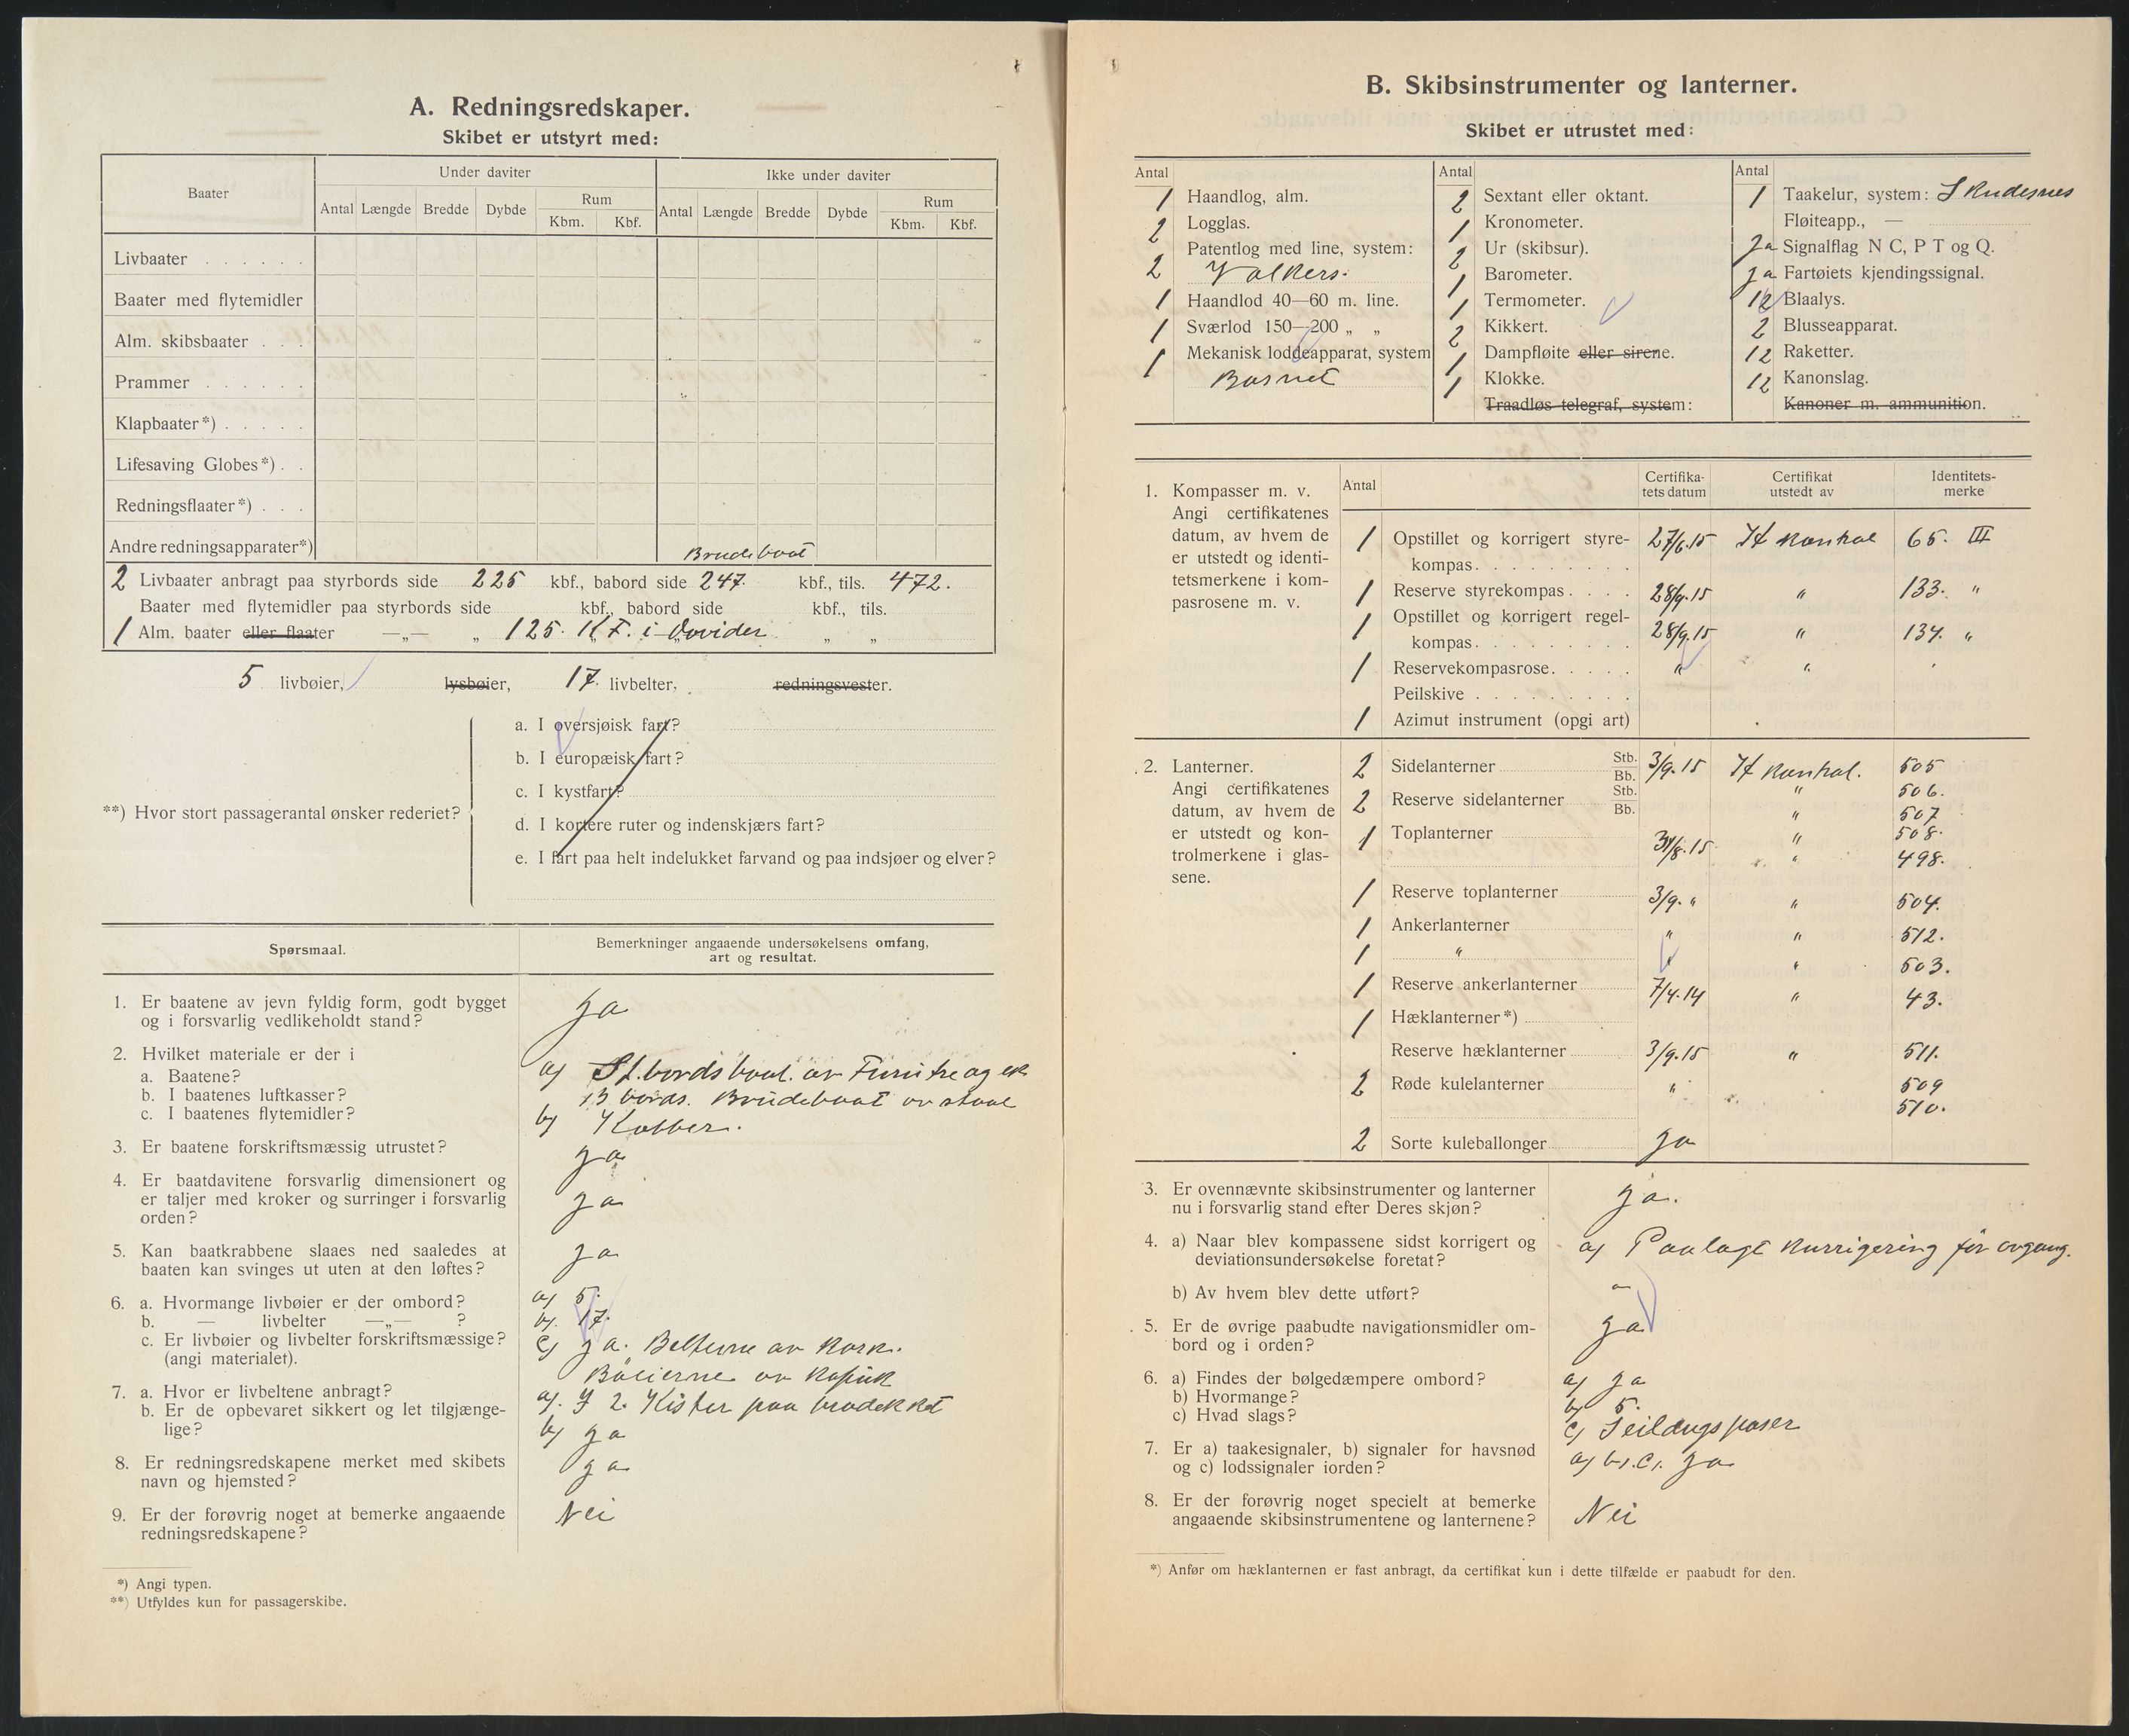 A. Redningsredskaper.
Skibet er utstyrt med:
Baater
Under daviter
Ikke under daviter
Antal Længde Bredde Dybde Rum Kbm. Kbf.
Antal Længde Bredde Dybde Rum Kbm. Kbf.
Livbaater . . . . . .
Baater med flytemidler
Alm. skibsbaater . . .
Prammer . . . . . .
Klapbaater*) . . . . .
Lifesaving Globes*) . .
Redningsflaater*) . . .
Andre redningsapparater*) Brudebaat
2 Livbaater anbragt paa styrbords side 225 kbf., babord side 247. kbf., tils. 472.
Baater med flytemidler paa styrbords side kbf., babord side kbf., tils.
1 Alm. baater eller flaater —„— „ 125. K F. i Dovider „ „
5 livbøier, lysbøier, 17. livbelter, redningsvester.
**) Hvor stort passagerantal ønsker rederiet?
a. I oversjøisk fart?
b. I europæisk fart?
c. I kystfart?
d. I kortere ruter og indenskjærs fart?
e. I fart paa helt indelukket farvand og paa indsjøer og elver?
Spørsmaal.
Bemerkninger angaaende undersøkelsens omfang,
art og resultat.
1. Er baatene av jevn fyldig form, godt bygget
og i forsvarlig vedlikeholdt stand?
Ja
2. Hvilket materiale er der i
a. Baatene?
b. I baatenes luftkasser?
c. I baatenes flytemidler?
a) St.bords baat. av Furutre og ek
B bords. Brudebaat av staal
b) Kobber.
3. Er baatene forskriftsmæssig utrustet?
ja
4. Er baatdavitene forsvarlig dimensionert og
er taljer med kroker og surringer i forsvarlig
orden?
ja
5. Kan baatkrabbene slaaes ned saaledes at
baaten kan svinges ut uten at den løftes?
ja
6. a. Hvormange livbøier er der ombord?
b. — livbelter —„— ?
c. Er livbøier og livbelter forskriftsmæssige?
(angi materialet).
a) 5.
b). 17.
c) ja. Belterne av Kork.
Bøierne av Kapuk
7. a. Hvor er livbeltene anbragt?
b. Er de opbevaret sikkert og let tilgjænge-
lige?
a). I 2. Kister paa brodekket
b) ja
8. Er redningsredskapene merket med skibets
navn og hjemsted?
ja
9. Er der forøvrig noget at bemerke angaaende
redningsredskapene?
Nei
*) Angi typen.
**) Utfyldes kun for passagerskibe.
B. Skibsinstrumenter og lanterner.
Skibet er utrustet med:
Antal
1 Haandlog, alm.
2 Logglas.
Patentlog med line, system:
2 Valkers.
1 Haandlod 40—60 m. line.
1 Sværlod 150—200 „ „
1 Mekanisk loddeapparat, system
Basnet
Antal
2 Sextant eller oktant.
1 Kronometer.
2 Ur (skibsur).
1 Barometer.
1 Termometer.
2 Kikkert.
1 Dampfløite eller sirene.
1 Klokke.
Traadløs telegraf, system:
Antal
1 Taakelur, system: Skudesnes
Fløiteapp., —
Ja Signalflag N C, P T og Q.
ja Fartøiets kjendingssignal.
12 Blaalys.
2 Blusseapparat.
12 Raketter.
12 Kanonslag.
Kanoner m. ammunition.
1. Kompasser m. v.
Angi certifikatenes
datum, av hvem de
er utstedt og identi-
tetsmerkene i kom-
pasrosene m. v.
Antal Certifika-
tets datum Certifikat
utstedt av Identitets-
merke
1 Opstillet og korrigert styre-
kompas. . . . . . . . . 27/6.15 St kontrol 65. III
1 Reserve styrekompas . . . . 28/9.15 " 133. "
1 Opstillet og korrigert regel-
kompas. . . . . . . . . 28/9.15 " 134. "
1 Reservekompasrose. . . . . " "
Peilskive . . . . . . . . .
1 Azimut instrument (opgi art)
2. Lanterner.
Angi certifikatenes
datum, av hvem de
er utstedt og kon-
trolmerkene i glas-
sene.
2 Sidelanterner Stb. Bb. 3/9.15 St kontrol. 505
" 506.
2 Reserve sidelanterner Stb. Bb. " 507
" 508.
1 Toplanterner 31/8.15 " 498.
1 Reserve toplanterner 3/9. " " 504.
1 Ankerlanterner " " 512.
1 " " " 503.
1 Reserve ankerlanterner 7/4.14 " 43.
1 Hæklanterner*)
Reserve hæklanterner 3/9.15 " 511.
2 Røde kulelanterner " 509
510.
2 Sorte kuleballonger ja
3. Er ovennævnte skibsinstrumenter og lanterner
nu i forsvarlig stand efter Deres skjøn?
ja.
4. a) Naar blev kompassene sidst korrigert og
deviationsundersøkelse foretat?
a) Paalagt kurrigering før avgang.
b) Av hvem blev dette utført?
—
5. Er de øvrige paabudte navigationsmidler om-
bord og i orden?
ja
6. a) Findes der bølgedæmpere ombord?
b) Hvormange?
c) Hvad slags?
a) ja
b) 5.
c) Seildugsposer
7. Er a) taakesignaler, b) signaler for havsnød
og c) lodssignaler iorden?
a) b). c). ja
8. Er der forøvrig noget specielt at bemerke
angaaende skibsinstrumentene og lanternene?
Nei
*) Anfør om hæklanternen er fast anbragt, da certifikat kun i dette tilfælde er paabudt for den.